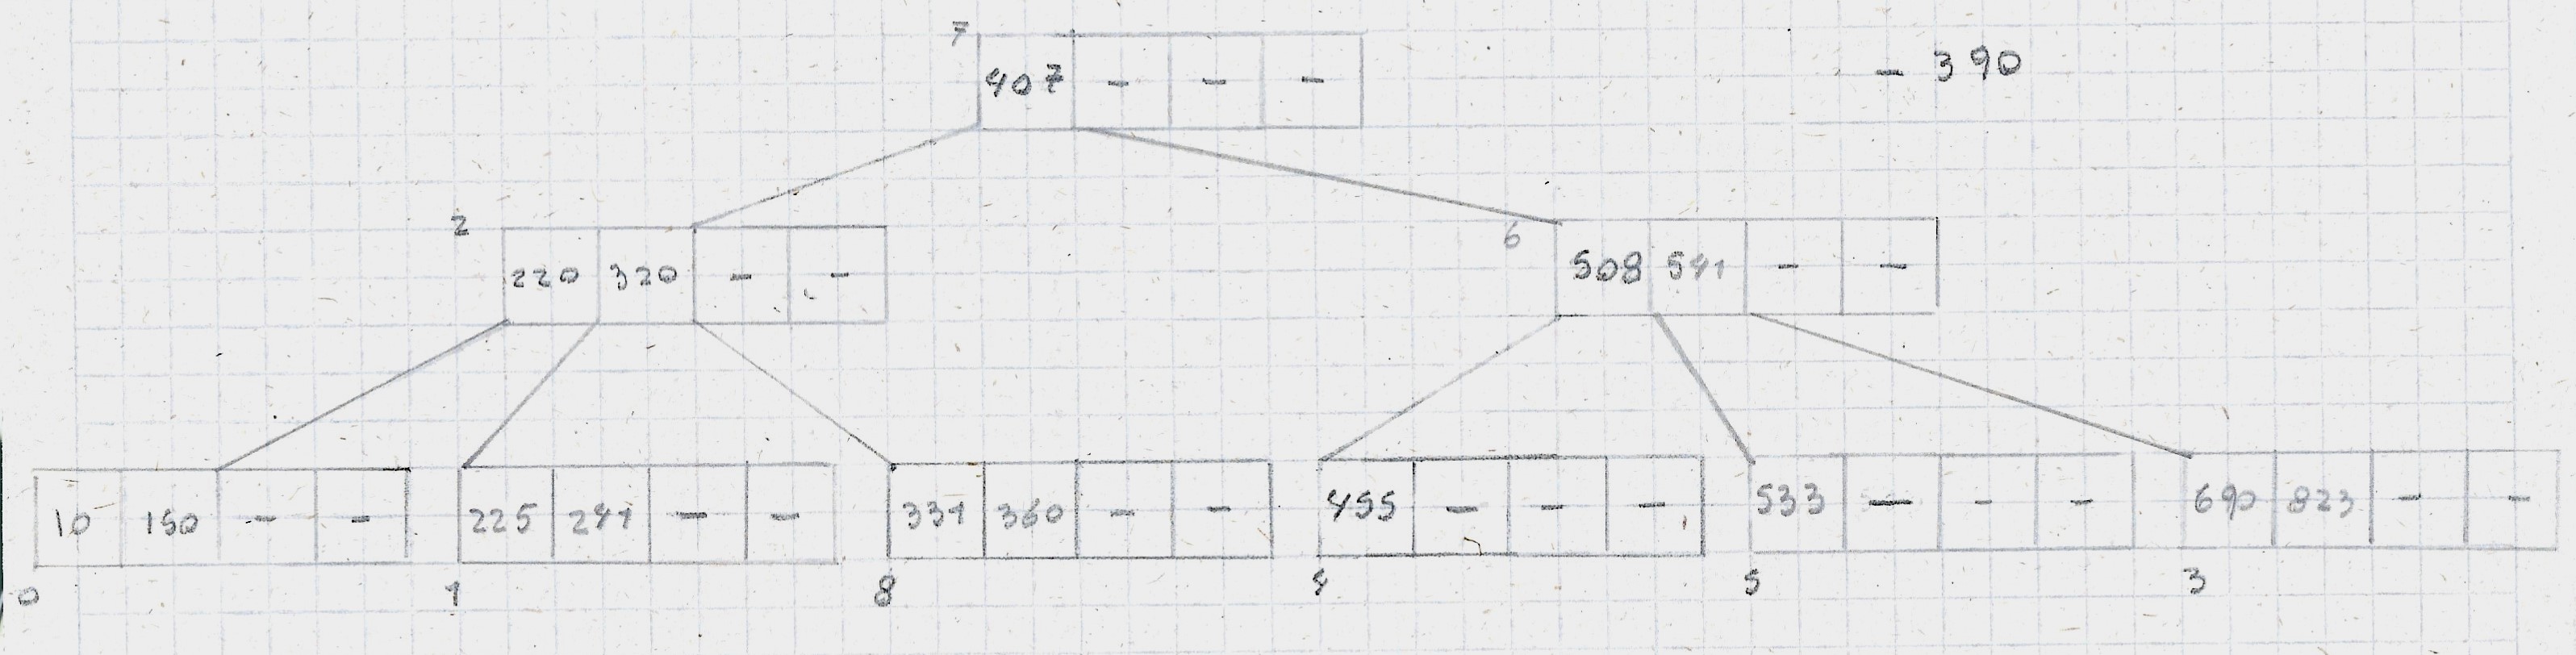 7
407 - - -
- 390
2
220 320 - -
6
508 541 - -
10 150 - -
225 241 - -
331 360 - -
455 - - -
533 - - -
690 823 - -
0 1 8 4 5 3